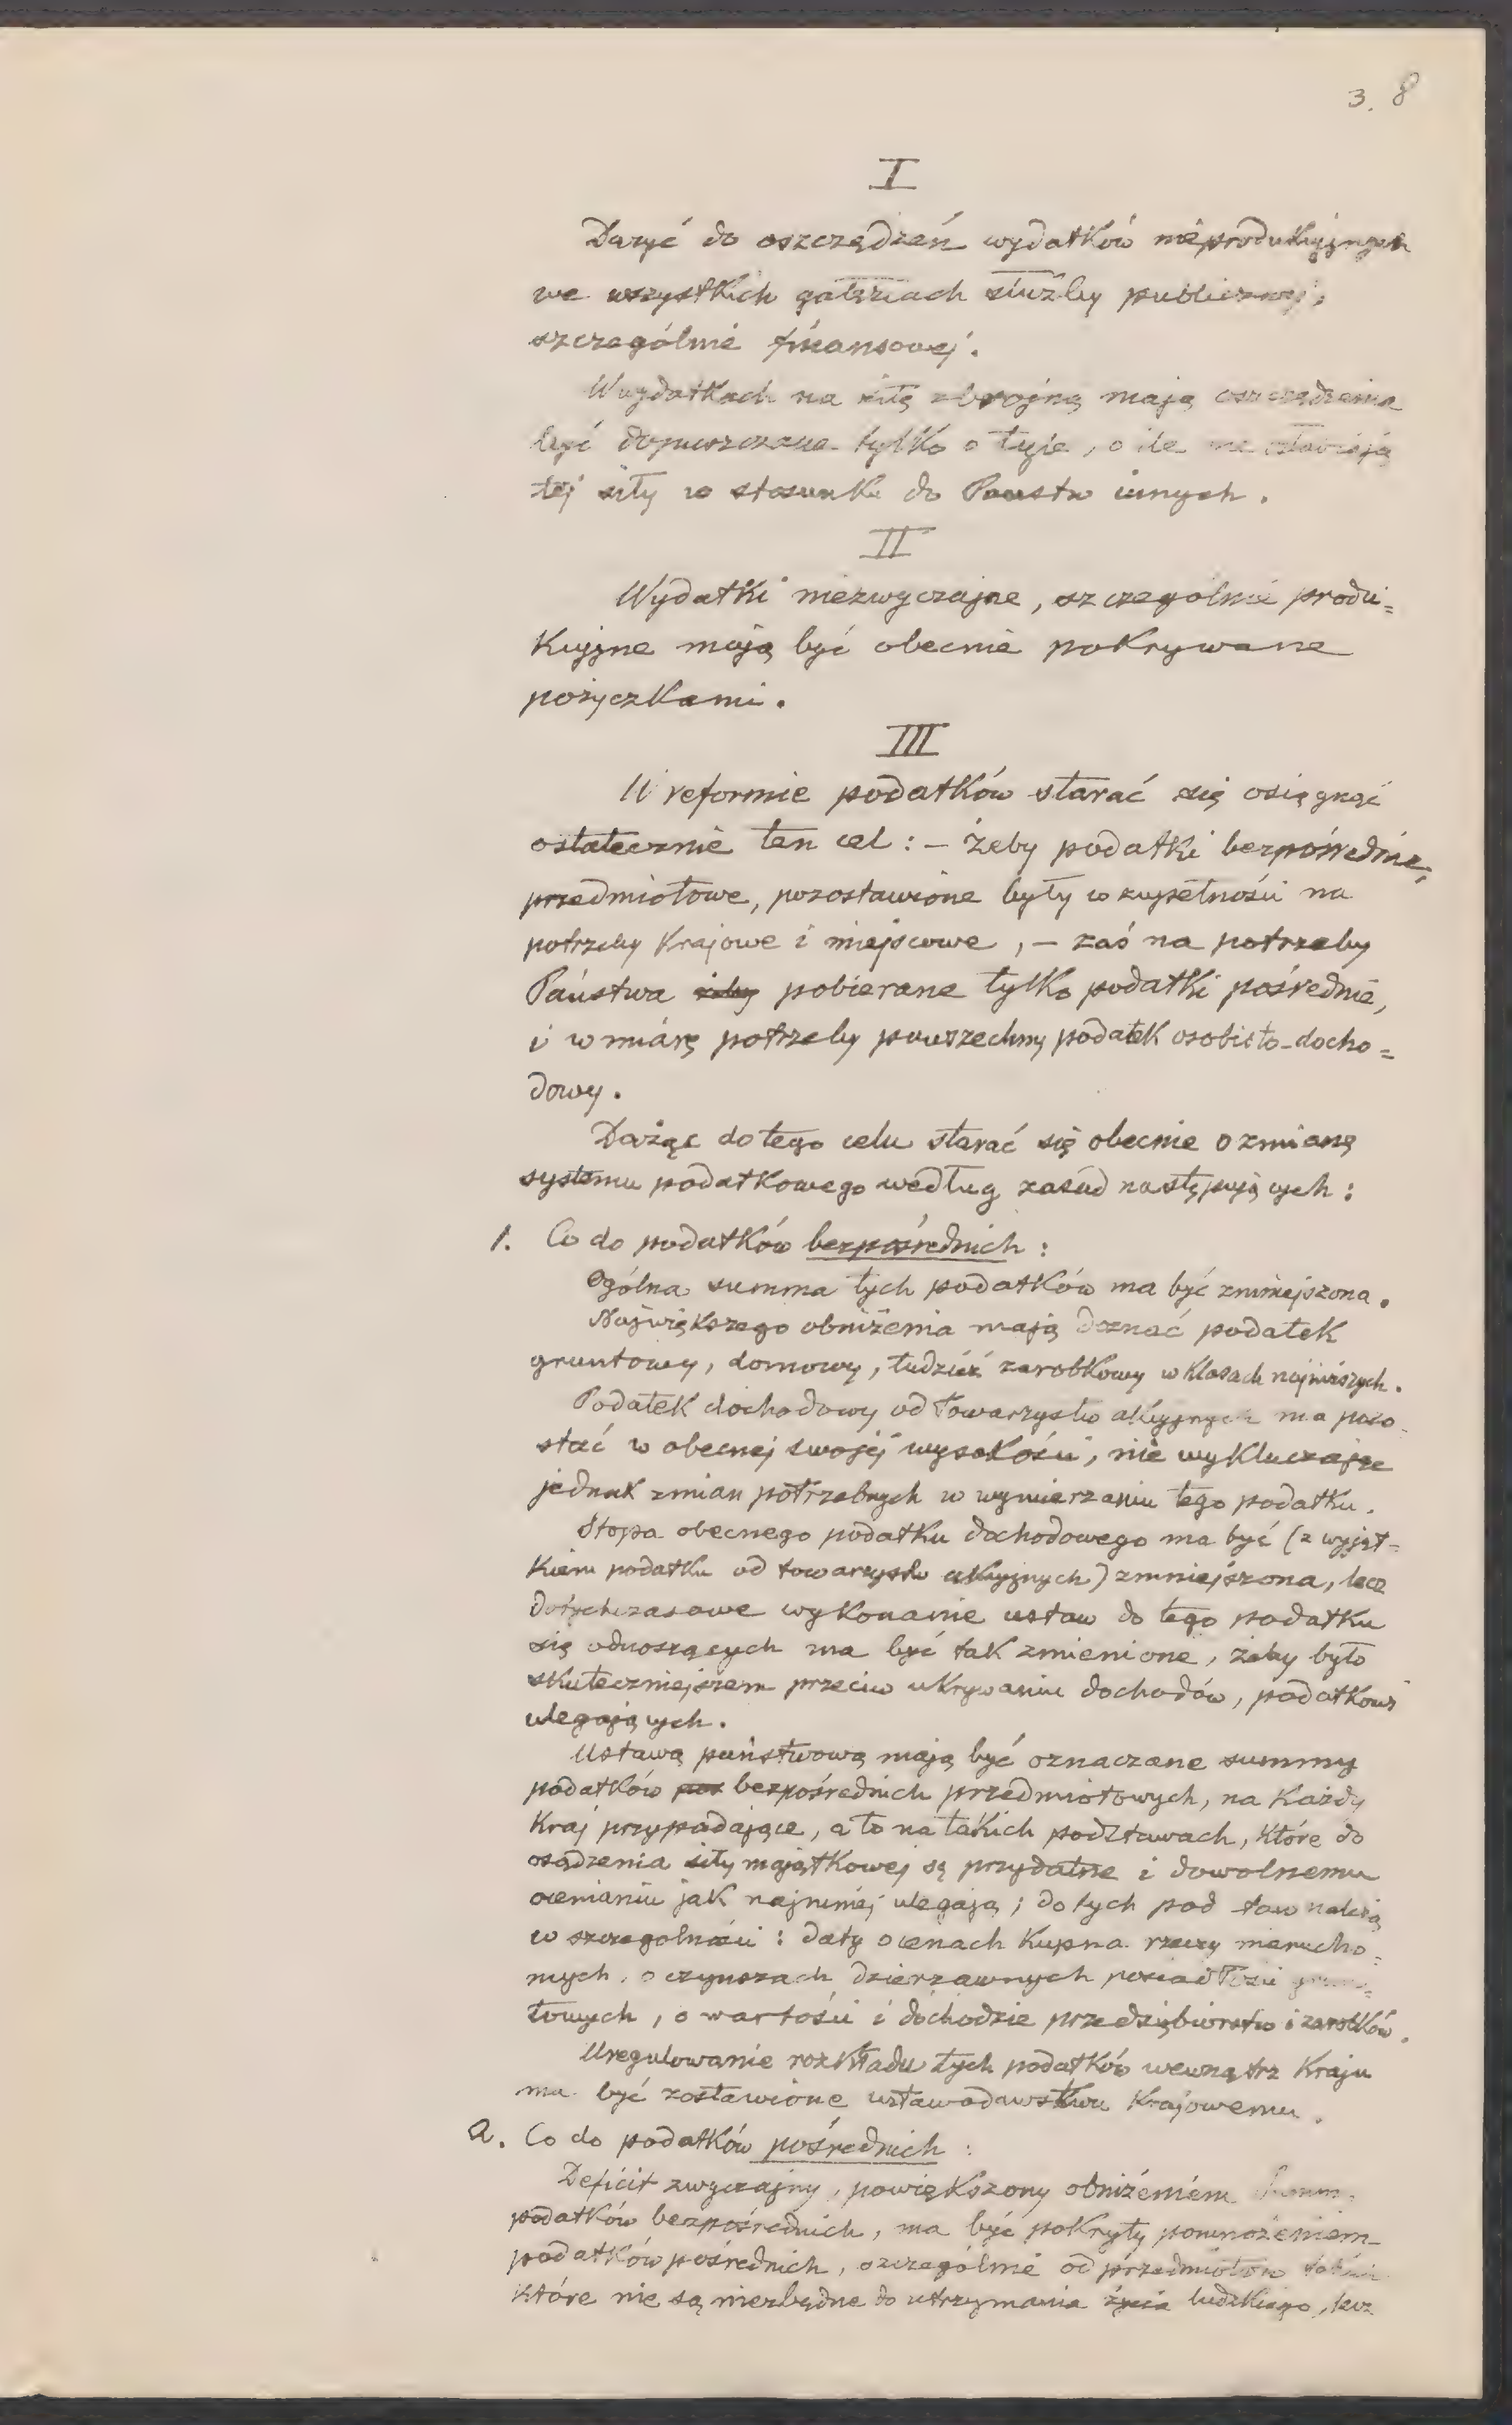 3. 8
I
Dążyć do oszczędzeń wydatków nieprodukcyjnych
we wszystkich gałęziach służby publicznej,
szczególnie finansowej.
W wydatkach na siłę zbrojną mają oszczędzenia
być dopuszczane tylko o tyle, o ile nie osłabiają
tej siły w stosunku do Państw innych.
II
Wydatki niezwyczajne, szczególnie produ=
kcyjne mają być obecnie pokrywane
pożyczkami.
III
W reformie podatków starać się osiągnąć
ostatecznie ten cel: – żeby podatki bezpośrednie,
przedmiotowe, pozostawione były w zupełności na
potrzeby krajowe i miejscowe, – zaś na potrzeby
Państwa żeby pobierane tylko podatki pośrednie,
i w miarę potrzeby powszechny podatek osobisto-docho=
dowy.
Dążąc do tego celu starać się obecnie o zmianę
systemu podatkowego według zasad następujących:
1. Co do podatków bezpośrednich:
Ogólna summa tych podatków ma być zmniejszona.
Największego obniżenia mają doznać podatek
gruntowy, domowy, tudzież zarobkowy w klasach najniższych.
Podatek dochodowy od towarzystw akcyjnych ma pozo-
stać w obecnej swojej wysokości, nie wykluczając
jednak zmian potrzebnych w wymierzaniu tego podatku.
Stopa obecnego podatku dochodowego ma być (z wyjąt=
kiem podatku od towarzystw akcyjnych) zmniejszona, lecz
dotychczasowe wykonanie ustaw do tego podatku
się odnoszących ma być tak zmienione, żeby było
skuteczniejszem przeciw ukrywaniu dochodów, podatkowi
ulegających.
Ustawą państwową mają być oznaczane summy
podatków pos bezpośrednich przedmiotowych, na każdy
kraj przypadające, a to na takich podstawach, które do
osądzenia siły majątkowej są przydatne i dowolnemu
ocenianiu jak najmniej ulegają; do tych podstaw należą
w szczególności: daty o cenach kupna rzeczy nierucho=
mych, o czynszach dzierżawnych posiadłości grun=
towych, o wartości i dochodzie przedsiębiorstw i zarobków.
Uregulowanie rozkładu tych podatków wewnątrz kraju
ma być zostawione ustawodawstwu krajowemu.
2. Co do podatków pośrednich:
Deficit zwyczajny, powiększony obniżeniem summy
podatków bezpośrednich, ma być pokryty pomnożeniem
podatków pośrednich, szczególnie od przedmiotów takich
które nie są niezbędne do utrzymania życia ludzkiego, lecz